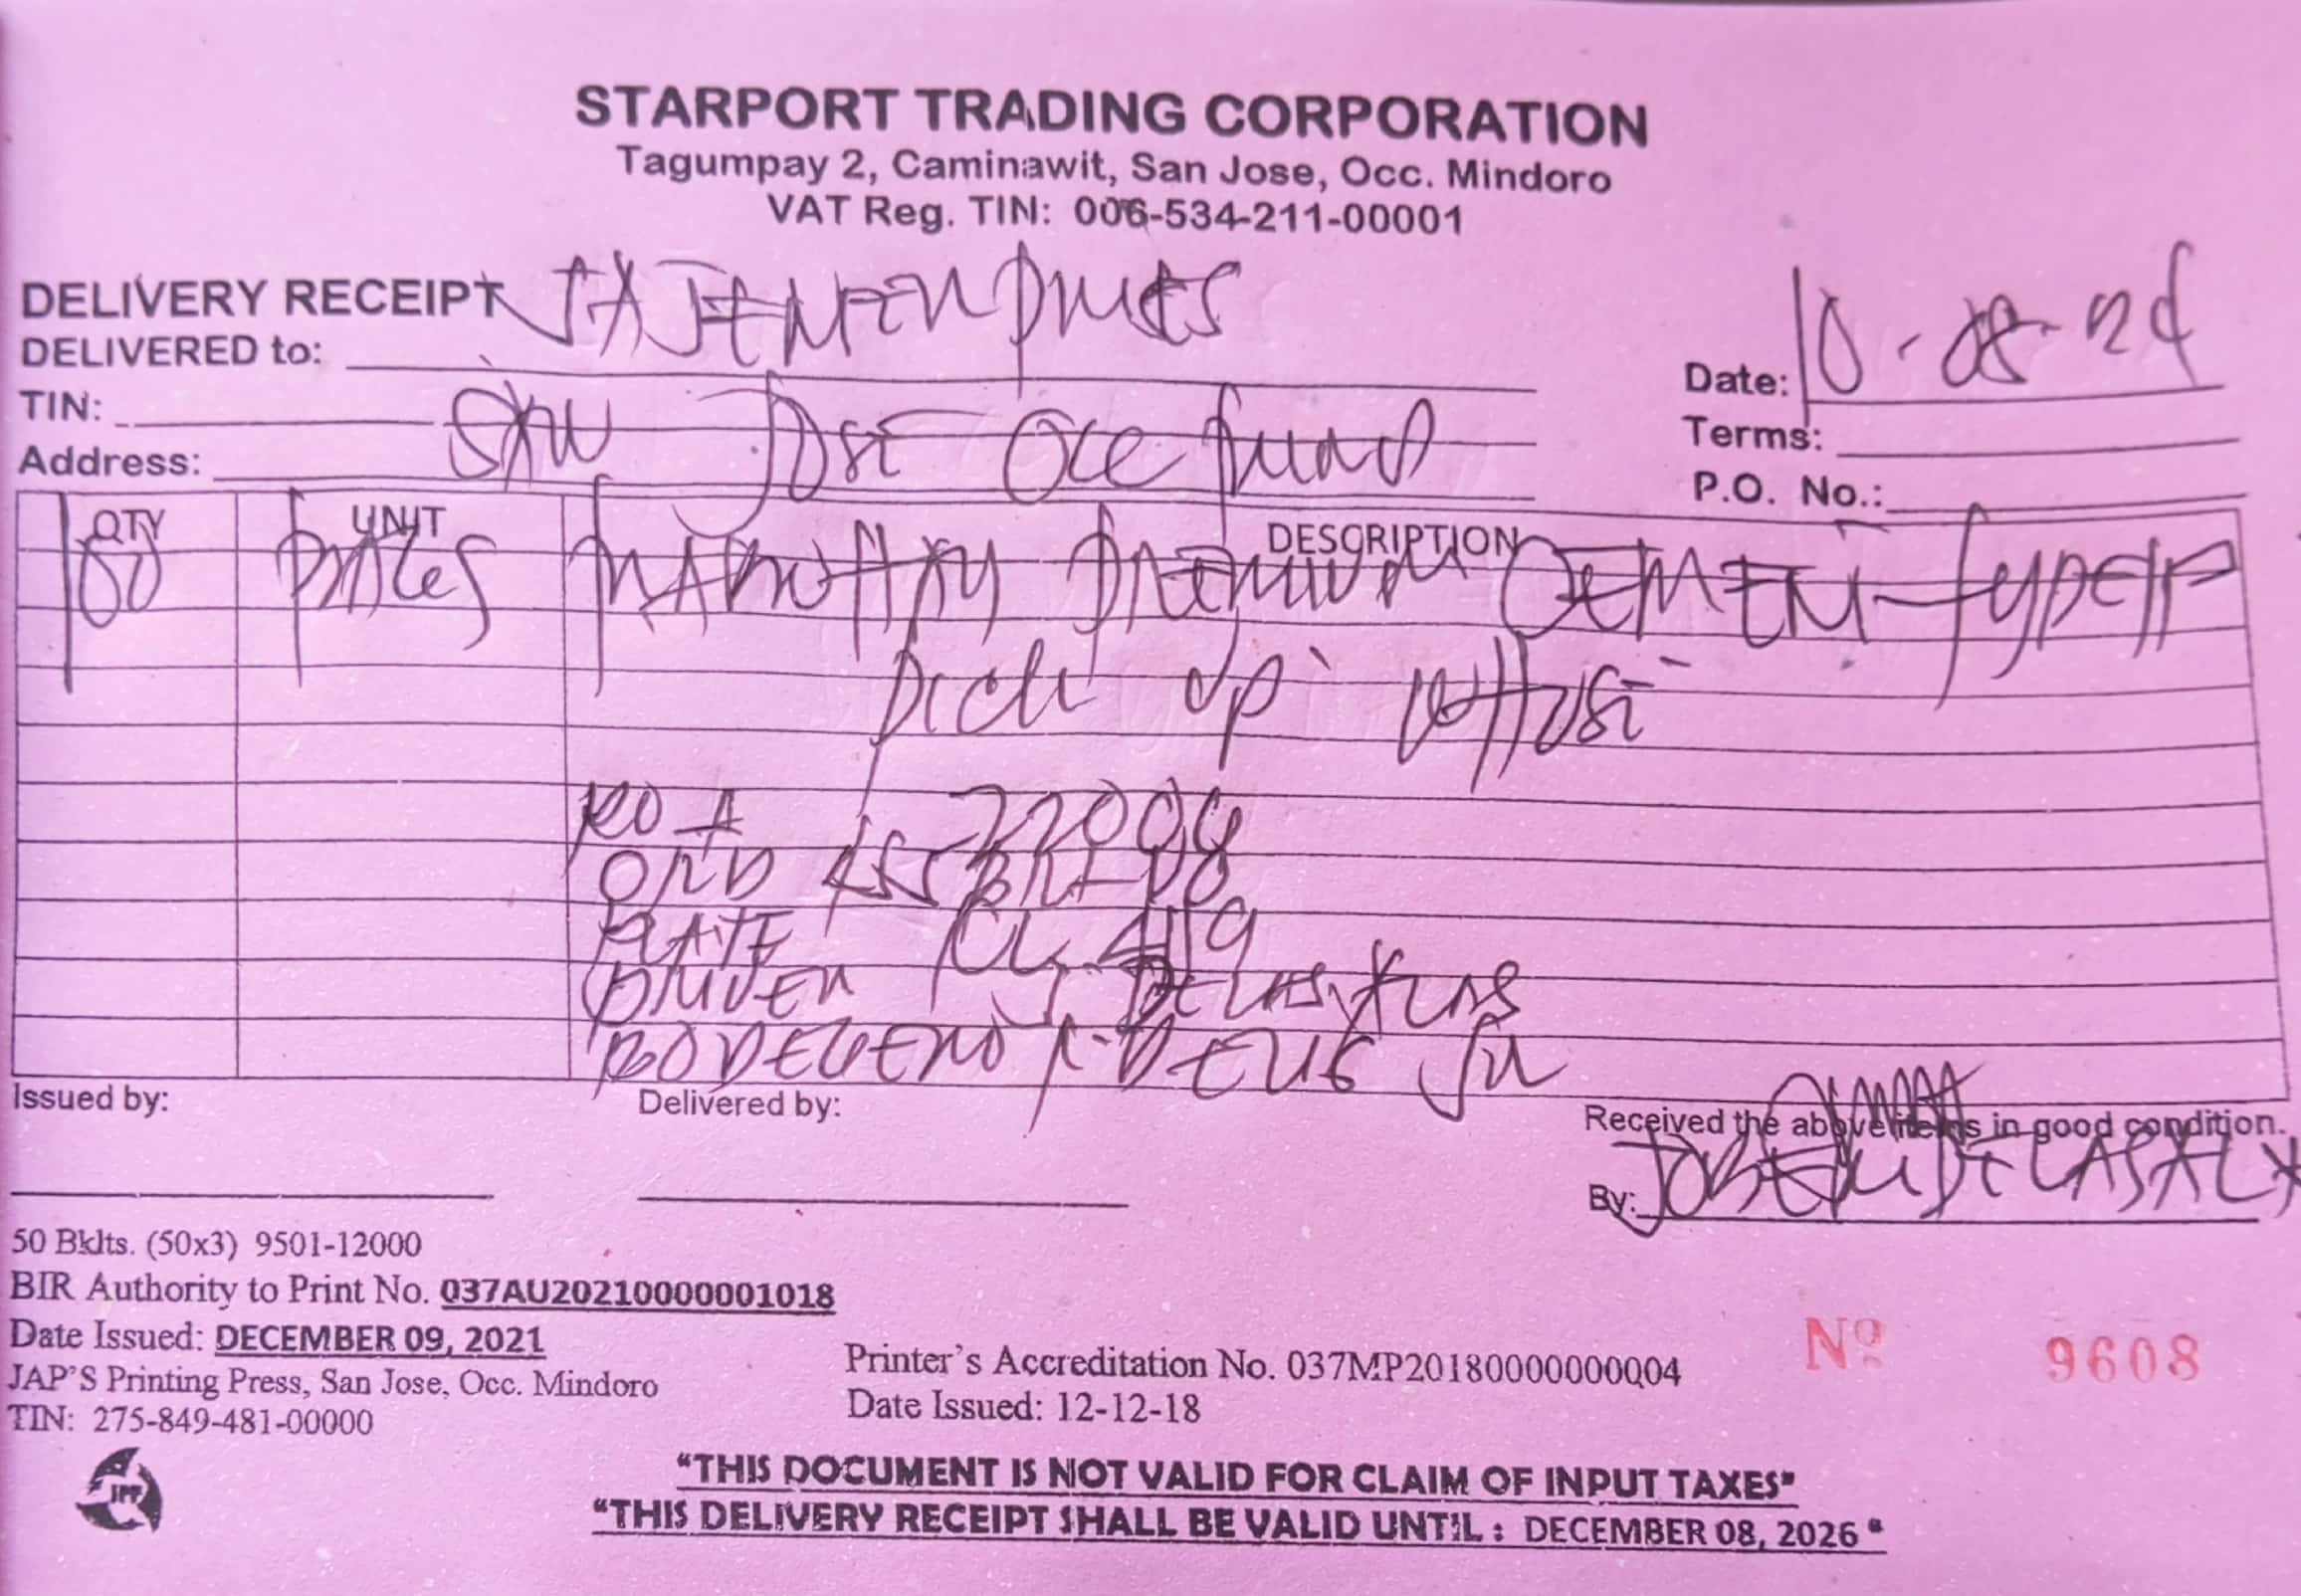 STARPORT TRADING CORPORATION
Tagumpay 2, Caminawit, San Jose, Occ. Mindoro
VAT Reg. TIN: 006-534-211-00001
DELIVERY RECEIPT
DELIVERED to:
Date: 10-08-24
TIN:
Terms:
Address: San Jose Occ
P.O. No.:
QTY UNIT DESCRIPTION
100 PREMIUM CEMENT TYPE 1P
Pick up
RO # 22098
ORD
PLATE
DRIVER J. DELAS
BODEGERO
Issued by:
Delivered by:
Received the above items in good condition.
By:
50 Bklts. (50x3) 9501-12000
BIR Authority to Print No. 037AU20210000001018
Date Issued: DECEMBER 09, 2021
JAP'S Printing Press, San Jose, Occ. Mindoro
TIN: 275-849-481-00000
Printer's Accreditation No. 037MP20180000000004
Date Issued: 12-12-18
Nº 9608
JPP
"THIS DOCUMENT IS NOT VALID FOR CLAIM OF INPUT TAXES"
"THIS DELIVERY RECEIPT SHALL BE VALID UNTIL : DECEMBER 08, 2026"